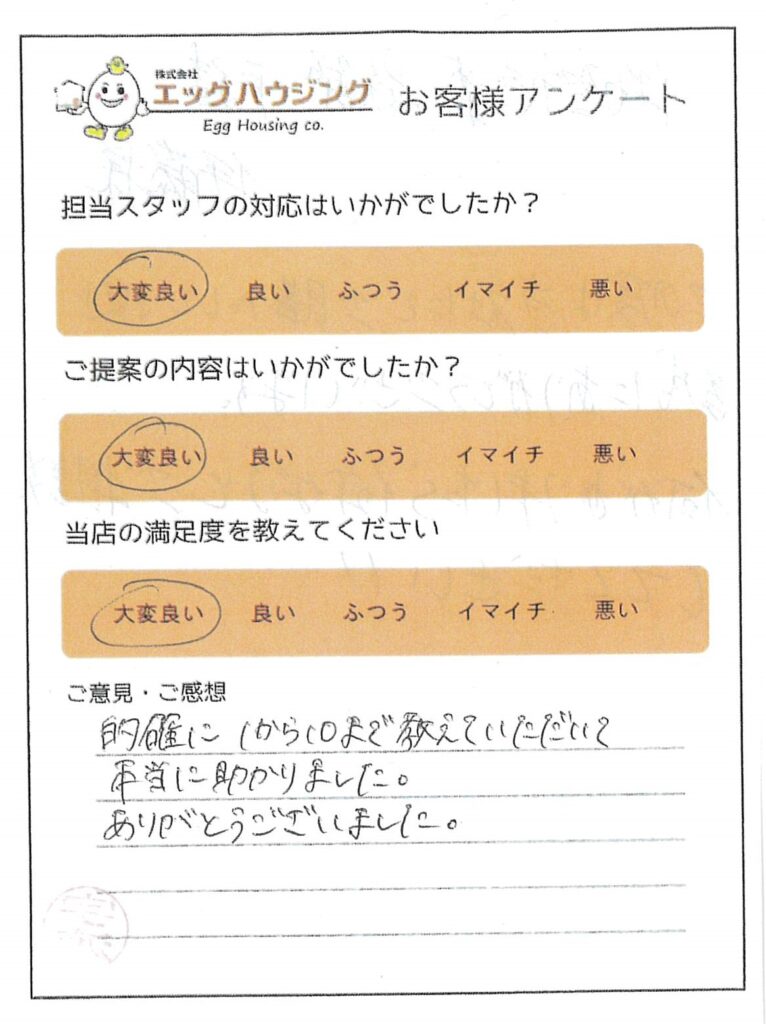 株式会社
エッグハウジング
Egg Housing co.
お客様アンケート
担当スタッフの対応はいかがでしたか？
大変良い 良い ふつう イマイチ 悪い
ご提案の内容はいかがでしたか？
大変良い 良い ふつう イマイチ 悪い
当店の満足度を教えてください
大変良い 良い ふつう イマイチ 悪い
ご意見・ご感想
的確に1から10まで教えていただいて
本当に助かりました。
ありがとうございました。